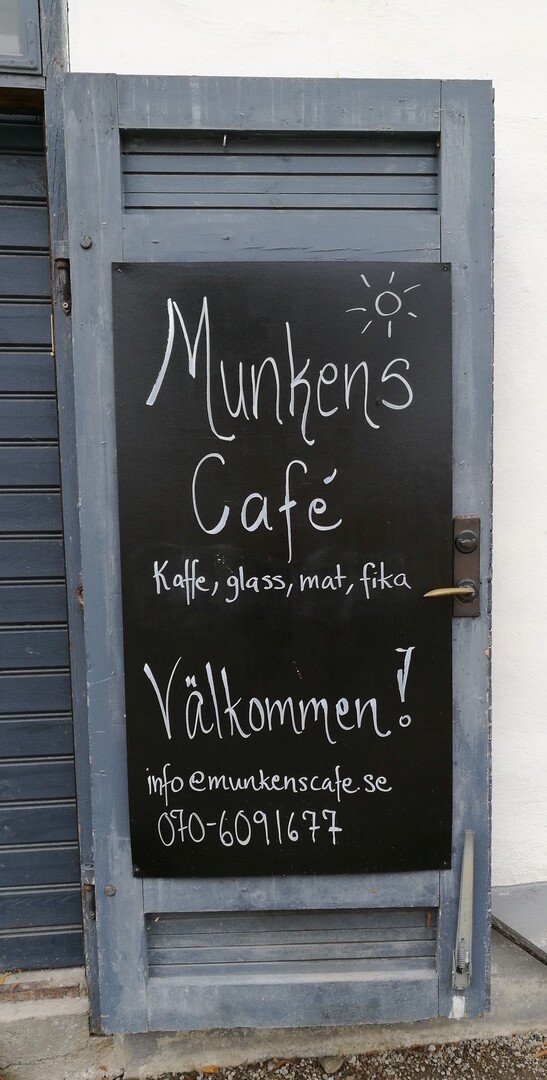 Munkens
Café
Kaffe, glass, mat, fika
Välkommen!
info@munkenscafe.se
070-6091677